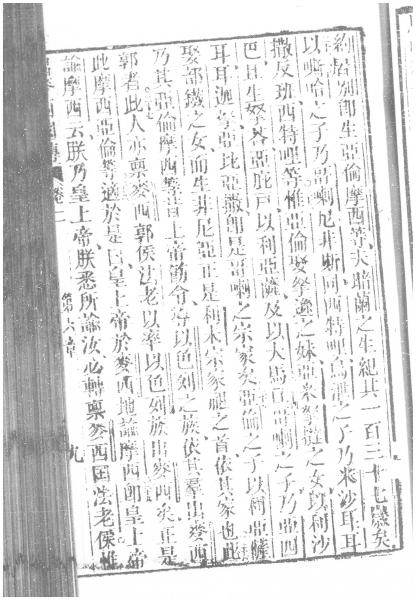 約居別即生亞倫摩西等夫暗蘭之生總共一百三十七歲矣
以嘶哈之子乃哥喇尼斐斯同西特哩烏泄之子乃米沙耳耳
撒反班西特哩等惟亞倫娶拏遜之妹亞米努撻之女以利沙
巴且生拏荅亞庇戶以利亞薩及以大馬耳哥喇之子乃亞西
耳耳迦拿亞比亞撒即是哥喇之宗家矣亞倫之子以利亞薩
娶部鐵之女而生非尼亞正是利未宗家腿之首依其家也此
乃其亞倫摩西等昔上帝勅令導以色列之族依其羣出麥西
郭者此人亦稟麥西郭侯法老以率以色列族出麥西矣正是
此摩西亞倫等適於是日皇上帝於麥西地諭摩西即皇上帝
諭摩西云朕乃皇上帝朕悉所諭汝必轉稟麥西國法老侯惟
卷二
第六章
九